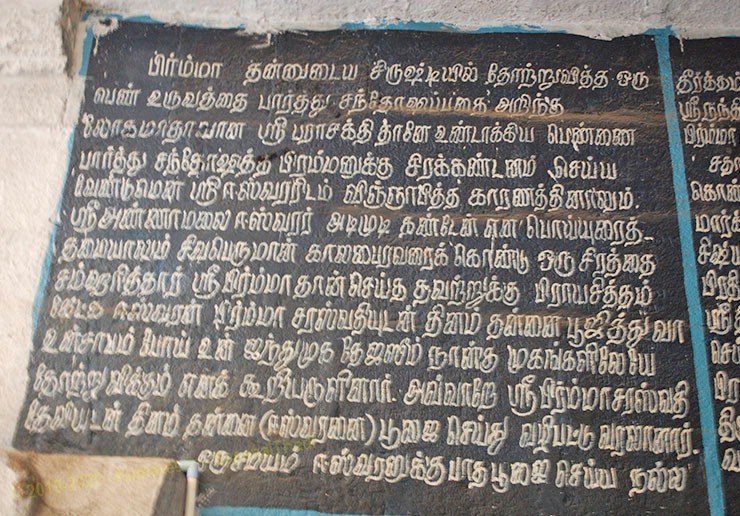 பிர்ம்மா தன்னுடைய சிருஷ்டியில் தோற்றுவித்த ஒரு
பெண் உருவத்தை பார்த்து சந்தோஷப்பதை அறிந்த
லோகமாதாவான ஸ்ரீ பராசக்தி தானே உண்டாக்கிய பெண்ணை
பார்த்து சந்தோஷித்த பிரம்மனுக்கு சிரக்கண்டனம் செய்ய
வேண்டுமென ஸ்ரீ ஈஸ்வரரிடம் விஞ்ஞாபித்த காரணத்தினாலும்.
ஸ்ரீ அண்ணாமலை ஈஸ்வரர் அடிமுடி கண்டேன் என பொய்யுரைத்-
தமையாலும் சிவபெருமான் காலபைரவரைக் கொண்டு ஒரு சிரத்தை
சம்ஹரித்தார் ஸ்ரீ பிர்ம்மா தான் செய்த தவற்றுக்கு பிராயசித்தம்
கேட்க ஈஸ்வரன் பிர்ம்மா சரஸ்வதியுடன் தினம் தன்னை பூஜித்து வா
உன்சாபம் போய் உன் ஐந்துமுக தேஜஸும் நான்கு முகங்களிலேயே
தோற்றுவிக்கும் எனக் கூறியருளினார். அவ்வாறே ஸ்ரீ பிர்ம்மாசரஸ்வதி
தேவியுடன் தினம் தன்னை (ஈஸ்வரனை) பூஜை செய்து வழிபட்டு வரலானார்.
ஒருசமயம் ஈஸ்வரனுக்கு பாத பூஜை செய்ய நல்ல
தீர்த்தம்
ஸ்ரீநந்தி
பிர்ம்மா